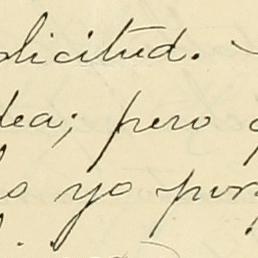 olicitud.
dea; pero
yo por